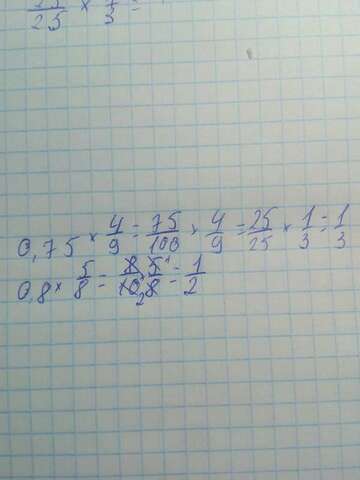 25/25 × 1/3 =
0,75 × 4/9 = 75/100 × 4/9 = 25/25 × 1/3 = 1/3
0,8 × 5/8 = 8/10 2 × 5 1/8 = 1/2